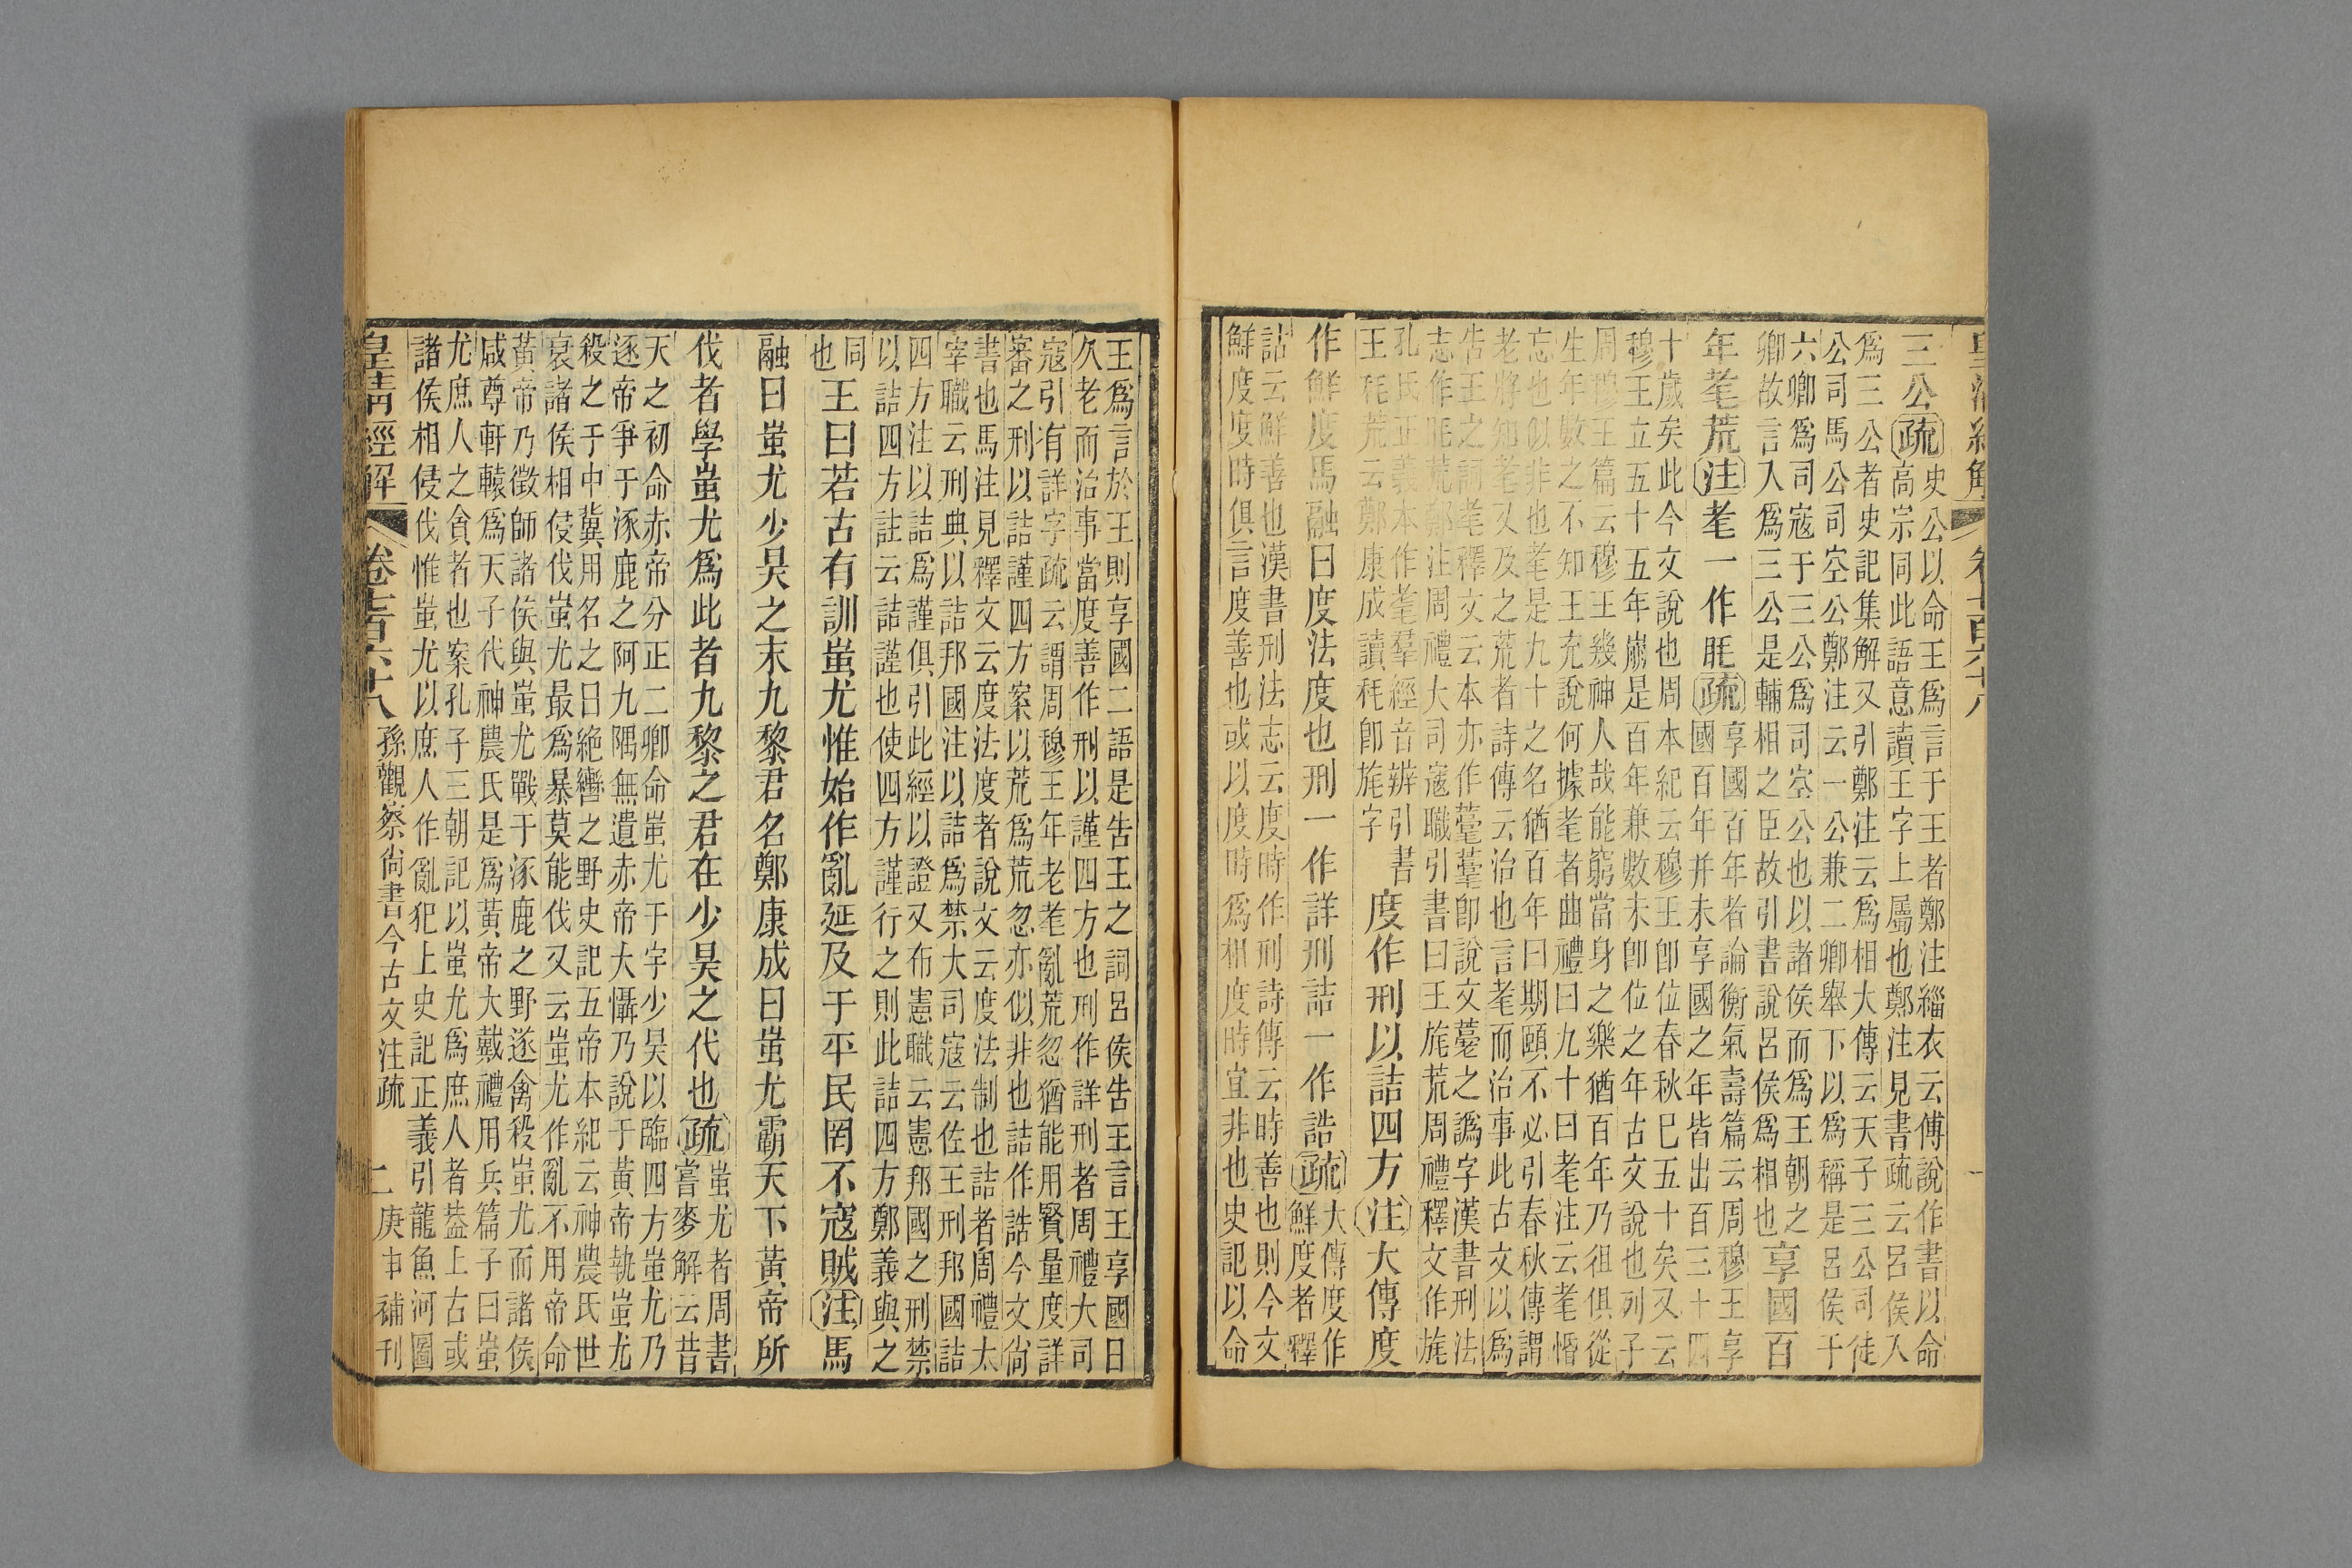 皇清經解 卷七百六十八 一
三公疏
史公以命王爲言于王者鄭注緇衣云傅說作書以命
高宗同此語意讀王字上屬也鄭注見書疏云呂侯入
爲三公者史記集解又引鄭注云爲相大傳云天子三公司徒
公司馬公司空公鄭注云一公兼二卿舉下以爲稱是呂侯于
六卿爲司寇于三公爲司空公也以諸侯而爲王朝之
卿故言入爲三公是輔相之臣故引書說呂侯爲相也
享國百
年耄荒注耄一作眊疏
享國百年者論衡氣壽篇云周穆王享
國百年并未享國之年皆出百三十四
十歲矣此今文說也周本紀云穆王卽位春秋已五十矣又云
穆王立五十五年崩是百年兼數未卽位之年古文說也列子
周穆王篇云穆王幾神人哉能窮當身之樂猶百年乃徂俱從
生年數之不知王充說何據耄者曲禮曰九十曰耄注云耄惛
忘也似非也耄是九十之名猶百年曰期頤不必引春秋傳謂
老將知耄又及之荒者詩傳云治也言耄而治事此古文以爲
告王之詞耄釋文云本亦作卽說文之譌字漢書刑法
志作眊荒鄭注周禮大司寇職引書曰王旄荒周禮釋文作旄
孔氏正義本作耄羣經音辨引書
王秏荒云鄭康成讀秏卽旄字
度作刑以詰四方注大傳度
作鮮度馬融曰度法度也刑一作詳刑詰一作誥疏
大傳度作
鮮度者釋
詁云鮮善也漢書刑法志云度時作刑詩傳云時善也則今文
鮮度度時俱言度善也或以度時爲相度時宜非也史記以命
王爲言於王則享國二語是告王之詞呂侯告王言王享國日
久老而治事當度善作刑以謹四方也刑作詳刑者周禮大司
寇引有詳字疏云謂周穆王年老耄亂荒忽猶能用賢量度詳
審之刑以詰謹四方案以荒爲荒忽亦似非也詰作誥今文尙
書也馬注見釋文云度法度者說文云度法制也詰者周禮太
宰職云刑典以詰邦國注以詰爲禁大司寇云佐王刑邦國詰
四方注以詰爲謹俱引此經以證又布憲職云憲邦國之刑禁
以詰四方註云詰謹也使四方謹行之則此詰四方鄭義與之
同
也
王曰若古有訓蚩尤惟始作亂延及于平民罔不寇賊注馬
融曰蚩尤少昊之末九黎君名鄭康成曰蚩尤霸天下黃帝所
伐者學蚩尤爲此者九黎之君在少昊之代也疏
蚩尤者周書
嘗麥解云昔
天之初命赤帝分正二卿命蚩尤于宇少昊以臨四方蚩尤乃
逐帝爭于涿鹿之阿九隅無遺赤帝大懾乃說于黃帝執蚩尤
殺之于中冀用名之曰絶轡之野史記五帝本紀云神農氏世
衰諸侯相侵伐蚩尤最爲暴莫能伐又云蚩尤作亂不用帝命
黃帝乃徵師諸侯與蚩尤戰于涿鹿之野遂禽殺蚩尤而諸侯
咸尊軒轅爲天子代神農氏是爲黃帝大戴禮用兵篇子曰蚩
尤庶人之貪者也案孔子三朝記以蚩尤爲庶人者葢上古或
諸侯相侵伐惟蚩尤以庶人作亂犯上史記正義引龍魚河圖
皇清經解 卷七百六十八 孫觀察尙書今古文注疏 二 庚申補刊